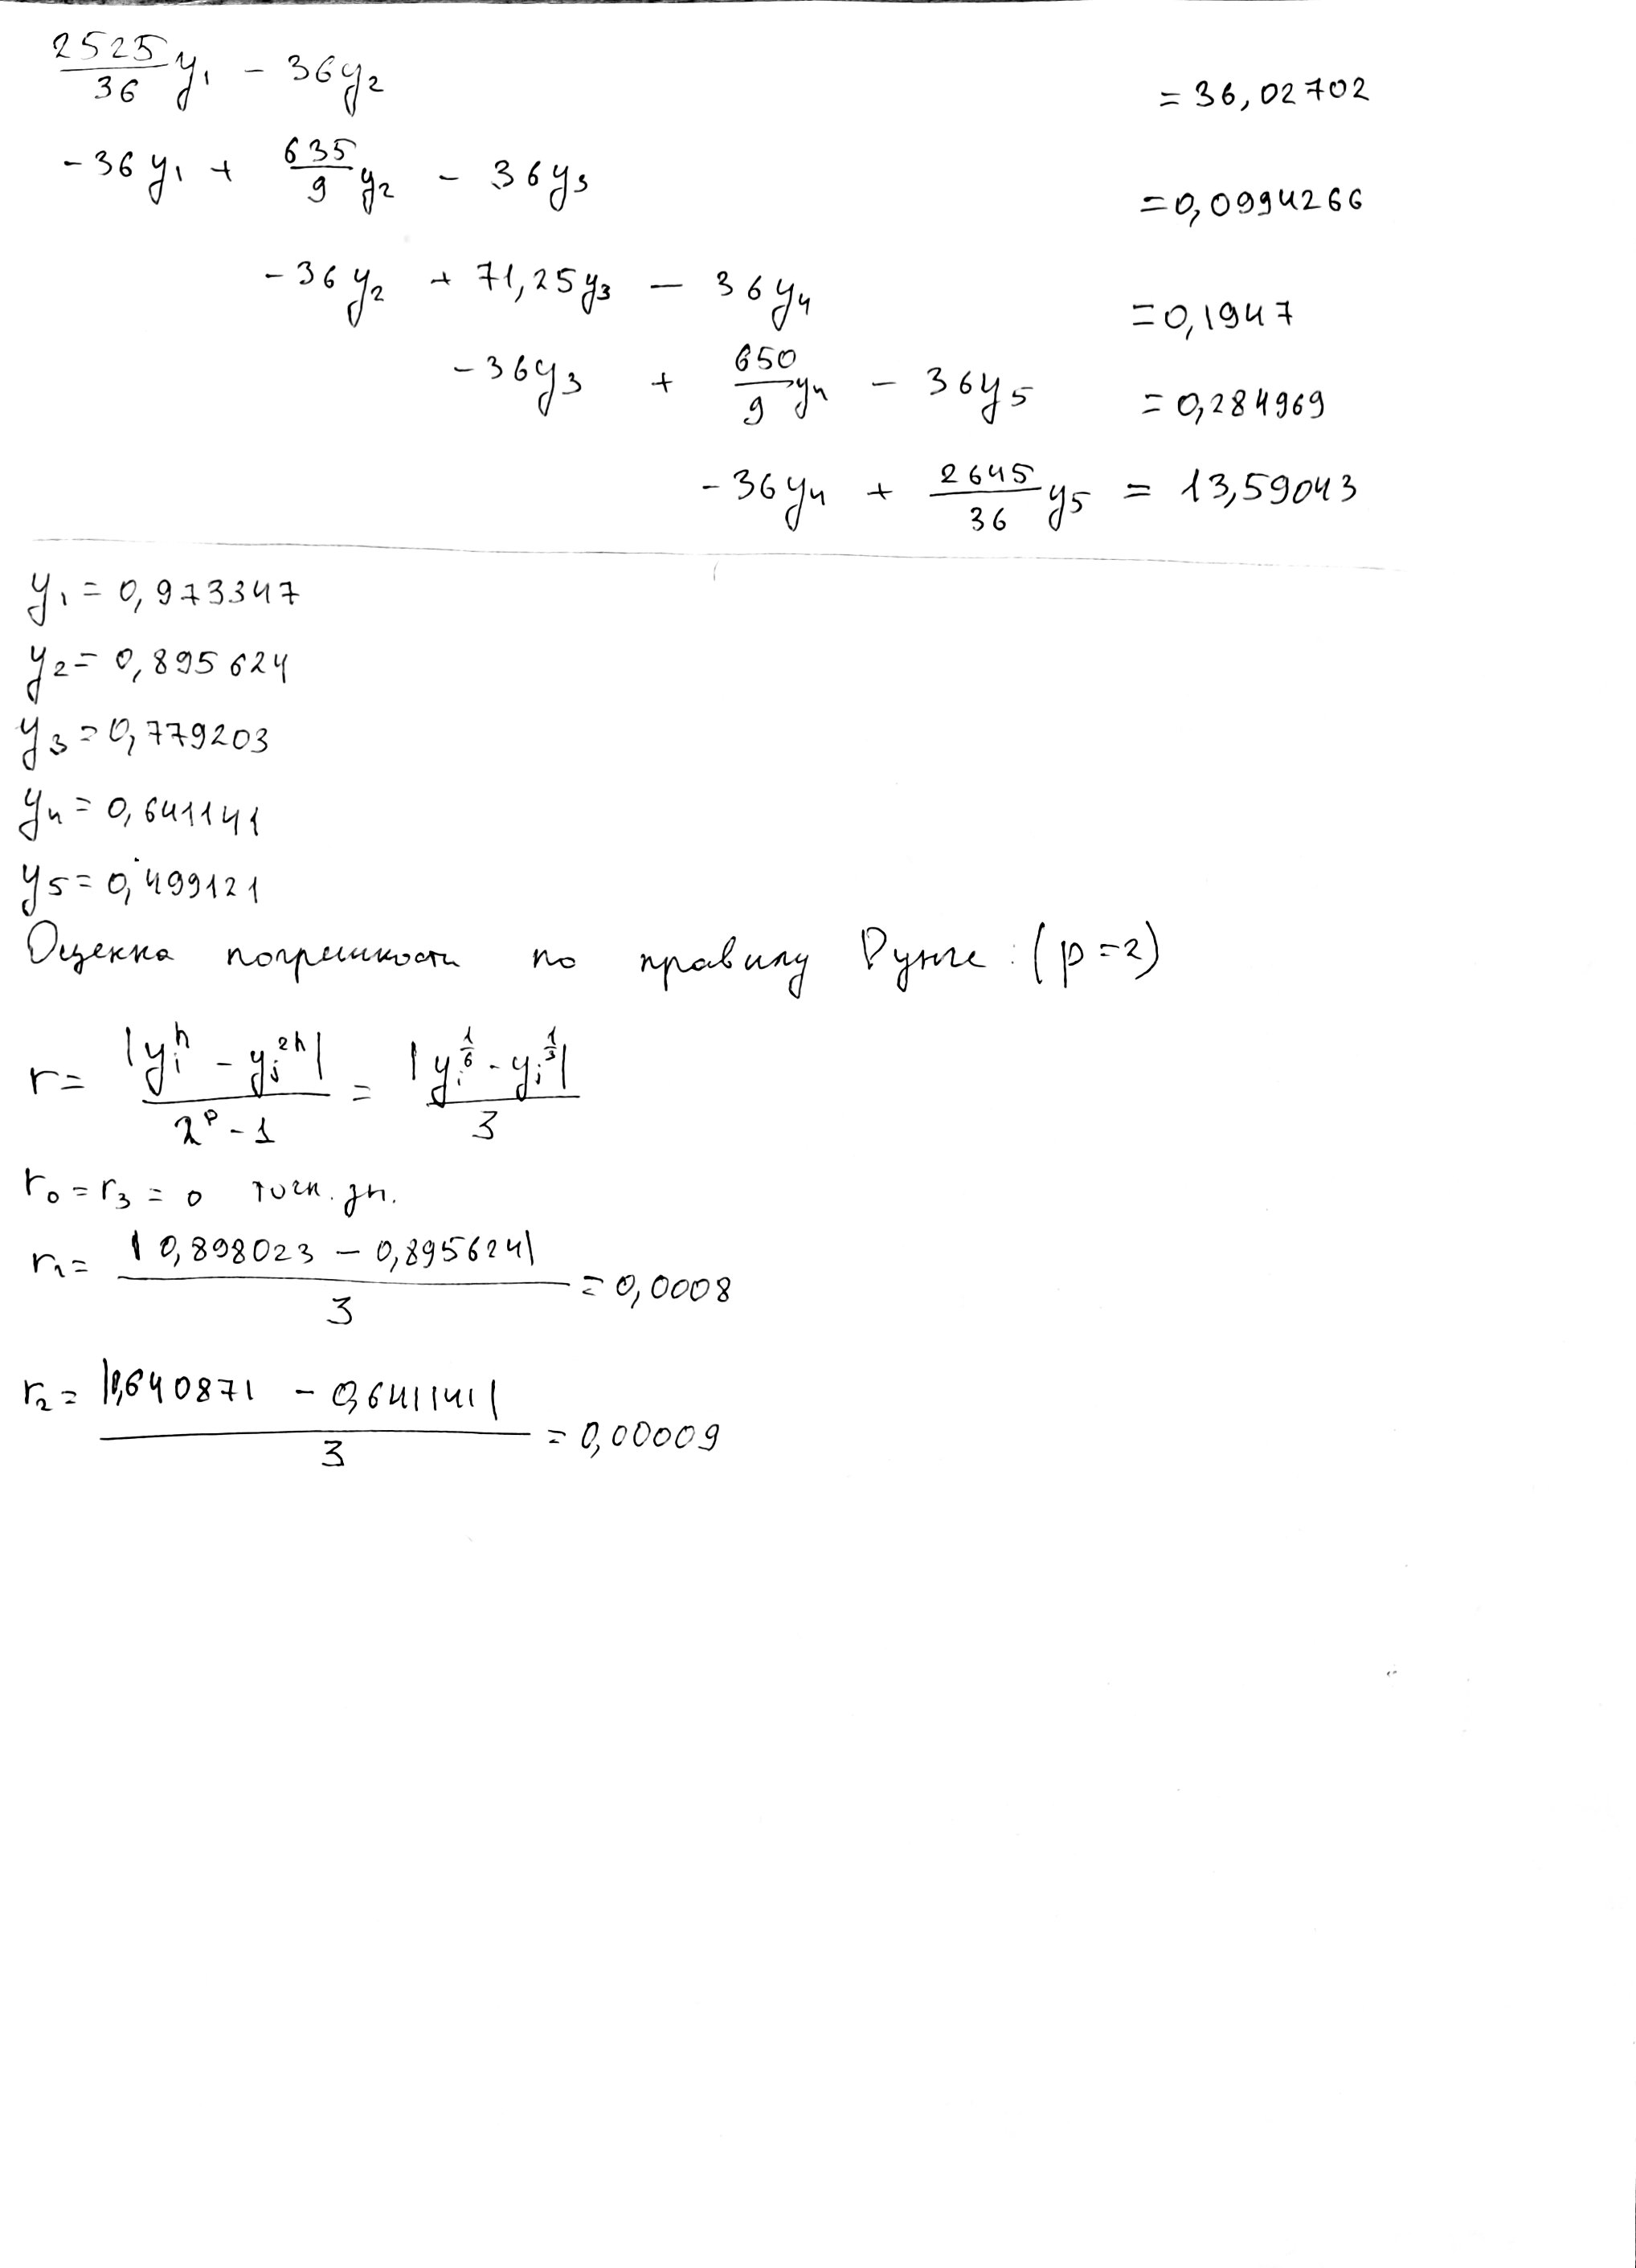 2525/36 y₁ - 36y₂ = 36,02702
-36y₁ + 635/9 y₂ - 36y₃ = 0,0994266
-36y₂ + 71,25y₃ - 36y₄ = 0,1947
-36y₃ + 650/9 y₄ - 36y₅ = 0,284969
-36y₄ + 2645/36 y₅ = 13,59043
y₁ = 0,973347
y₂ = 0,895624
y₃ = 0,779203
y₄ = 0,641141
y₅ = 0,499121
Оценка погрешности по правилу Рунге: (p=2)
r = |yᵢʰ - yᵢ²ʰ| / (2ᵖ - 1) = |yᵢ^(1/6) - yᵢ^(1/3)| / 3
r₀ = r₃ = 0 точн. зн.
r₁ = |0,898023 - 0,895624| / 3 = 0,0008
r₂ = |0,640871 - 0,641141| / 3 = 0,00009